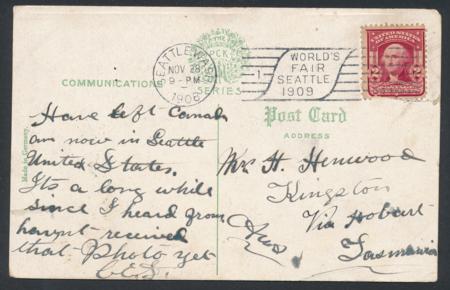 SEATTLE, WASH.
NOV 28
9 - PM
1908
1
WORLD'S
FAIR
SEATTLE
1909
UNITED STATES
OF AMERICA
2 2
PCK
SERIES
COMMUNICATION
Post Card
ADDRESS
Made in Germany.
Have left Canada
am now in Seattle
United States.
Its a long while
since I heard from
havnt received
that Photo yet
Mr H. Henwood
Kingston
Via Hobart
Tasmania